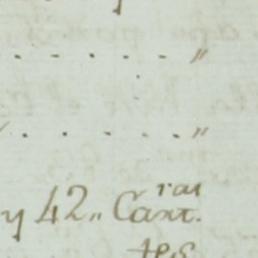 . . . . . . . "
. . . . . . "
y 42,, Cart.ras
tes